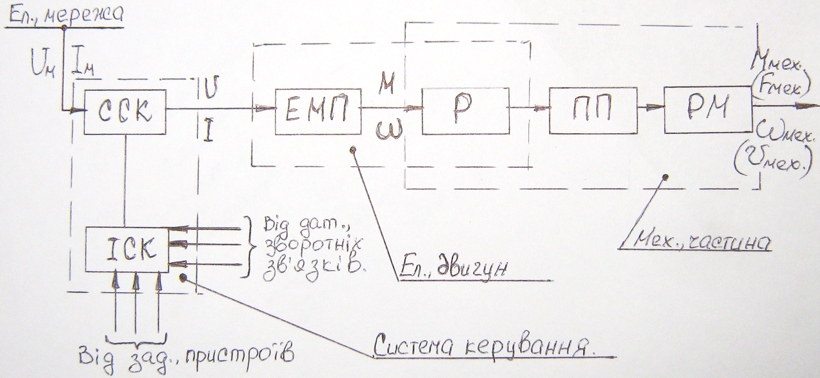 Ел., мережа
Uм Iм
ССК
U
I
ЕМП
M
ω
Р
ПП
РМ
Mмех.
(Fмех.)
ωмех.
(υмех.)
ІСК
Від дат.,
зворотніх
зв'язків.
Ел., двигун
Мех., частина
Від зад., пристроїв
Система керування.